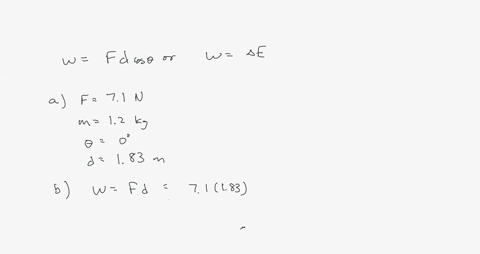 W = Fd cosθ or W = ΔE
a) F = 7.1 N
m = 1.2 kg
θ = 0°
d = 1.83 m
b) W = Fd = 7.1(1.83)